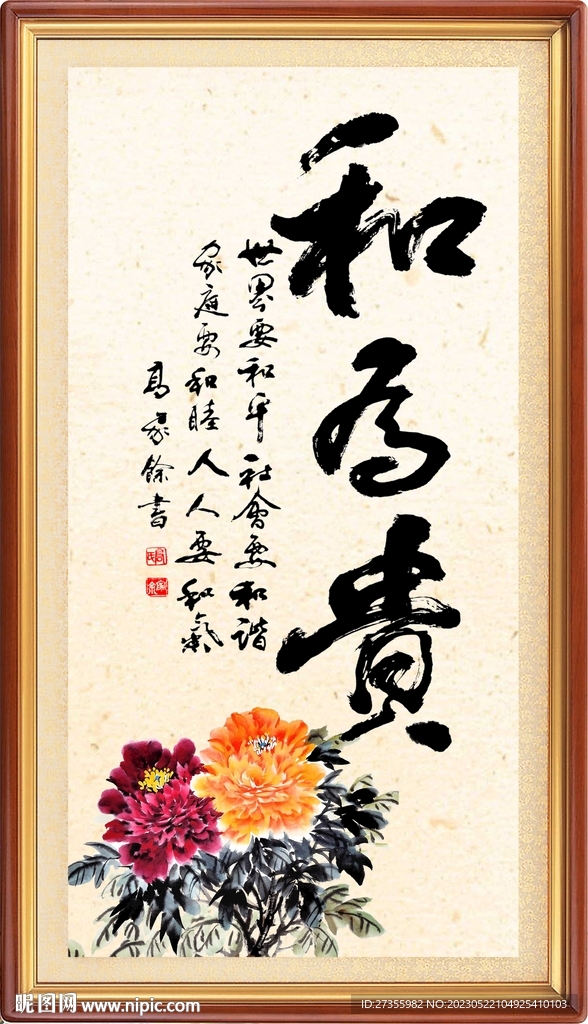 和為貴
世界要和平社會要和諧
家庭要和睦人人要和氣
高家餘書
昵图网 www.nipic.com
ID:27355982 NO:20230522104925410103